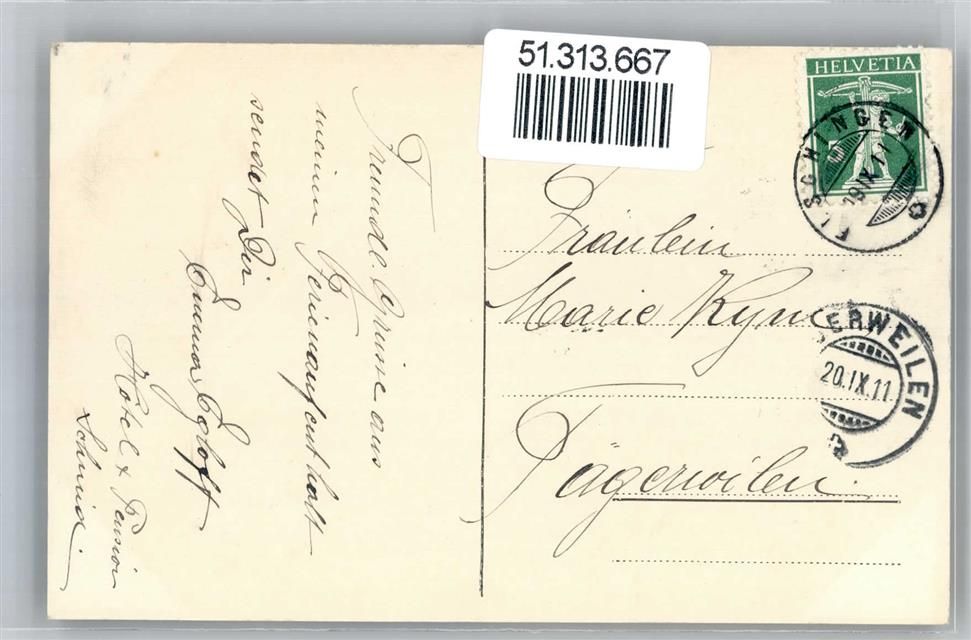 51.313.667
HELVETIA
FISCHINGEN
19.IX.11
Fräulein
Marie Kym
ERWEILEN
20.IX.11
Tägerwilen.
Freundl. Grüsse aus
meinem Ferienaufenthalt
sendet Dir
Emma Egloff
Hôtel & Pension